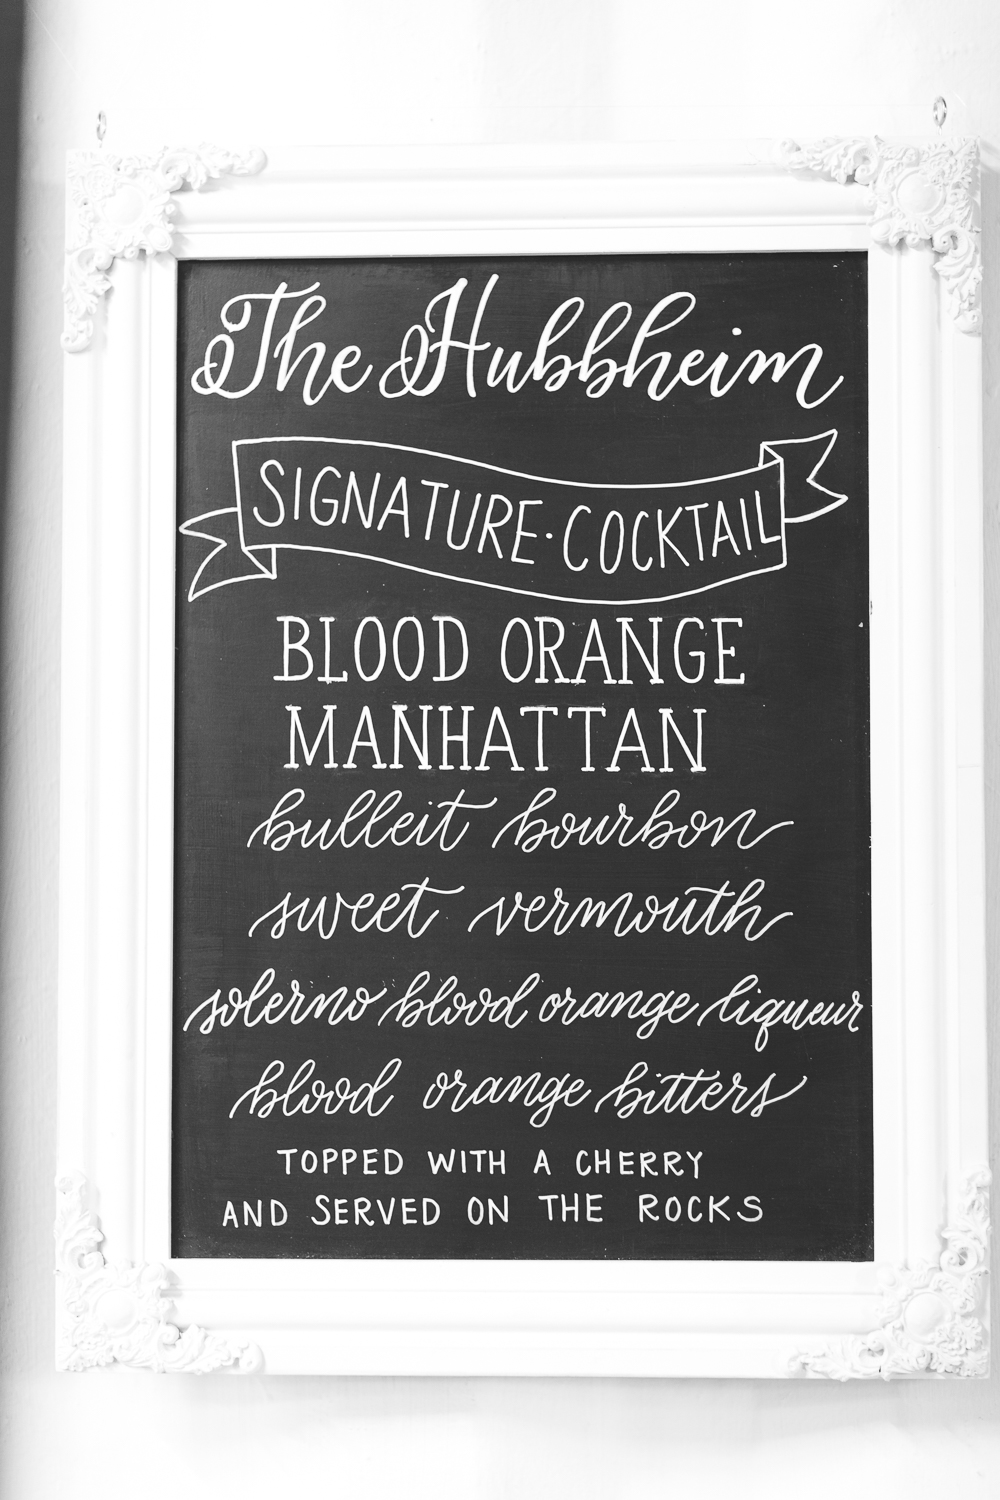 The Hubbheim
SIGNATURE·COCKTAIL
BLOOD ORANGE
MANHATTAN
bulleit bourbon
sweet vermouth
solerno blood orange liqueur
blood orange bitters
TOPPED WITH A CHERRY
AND SERVED ON THE ROCKS